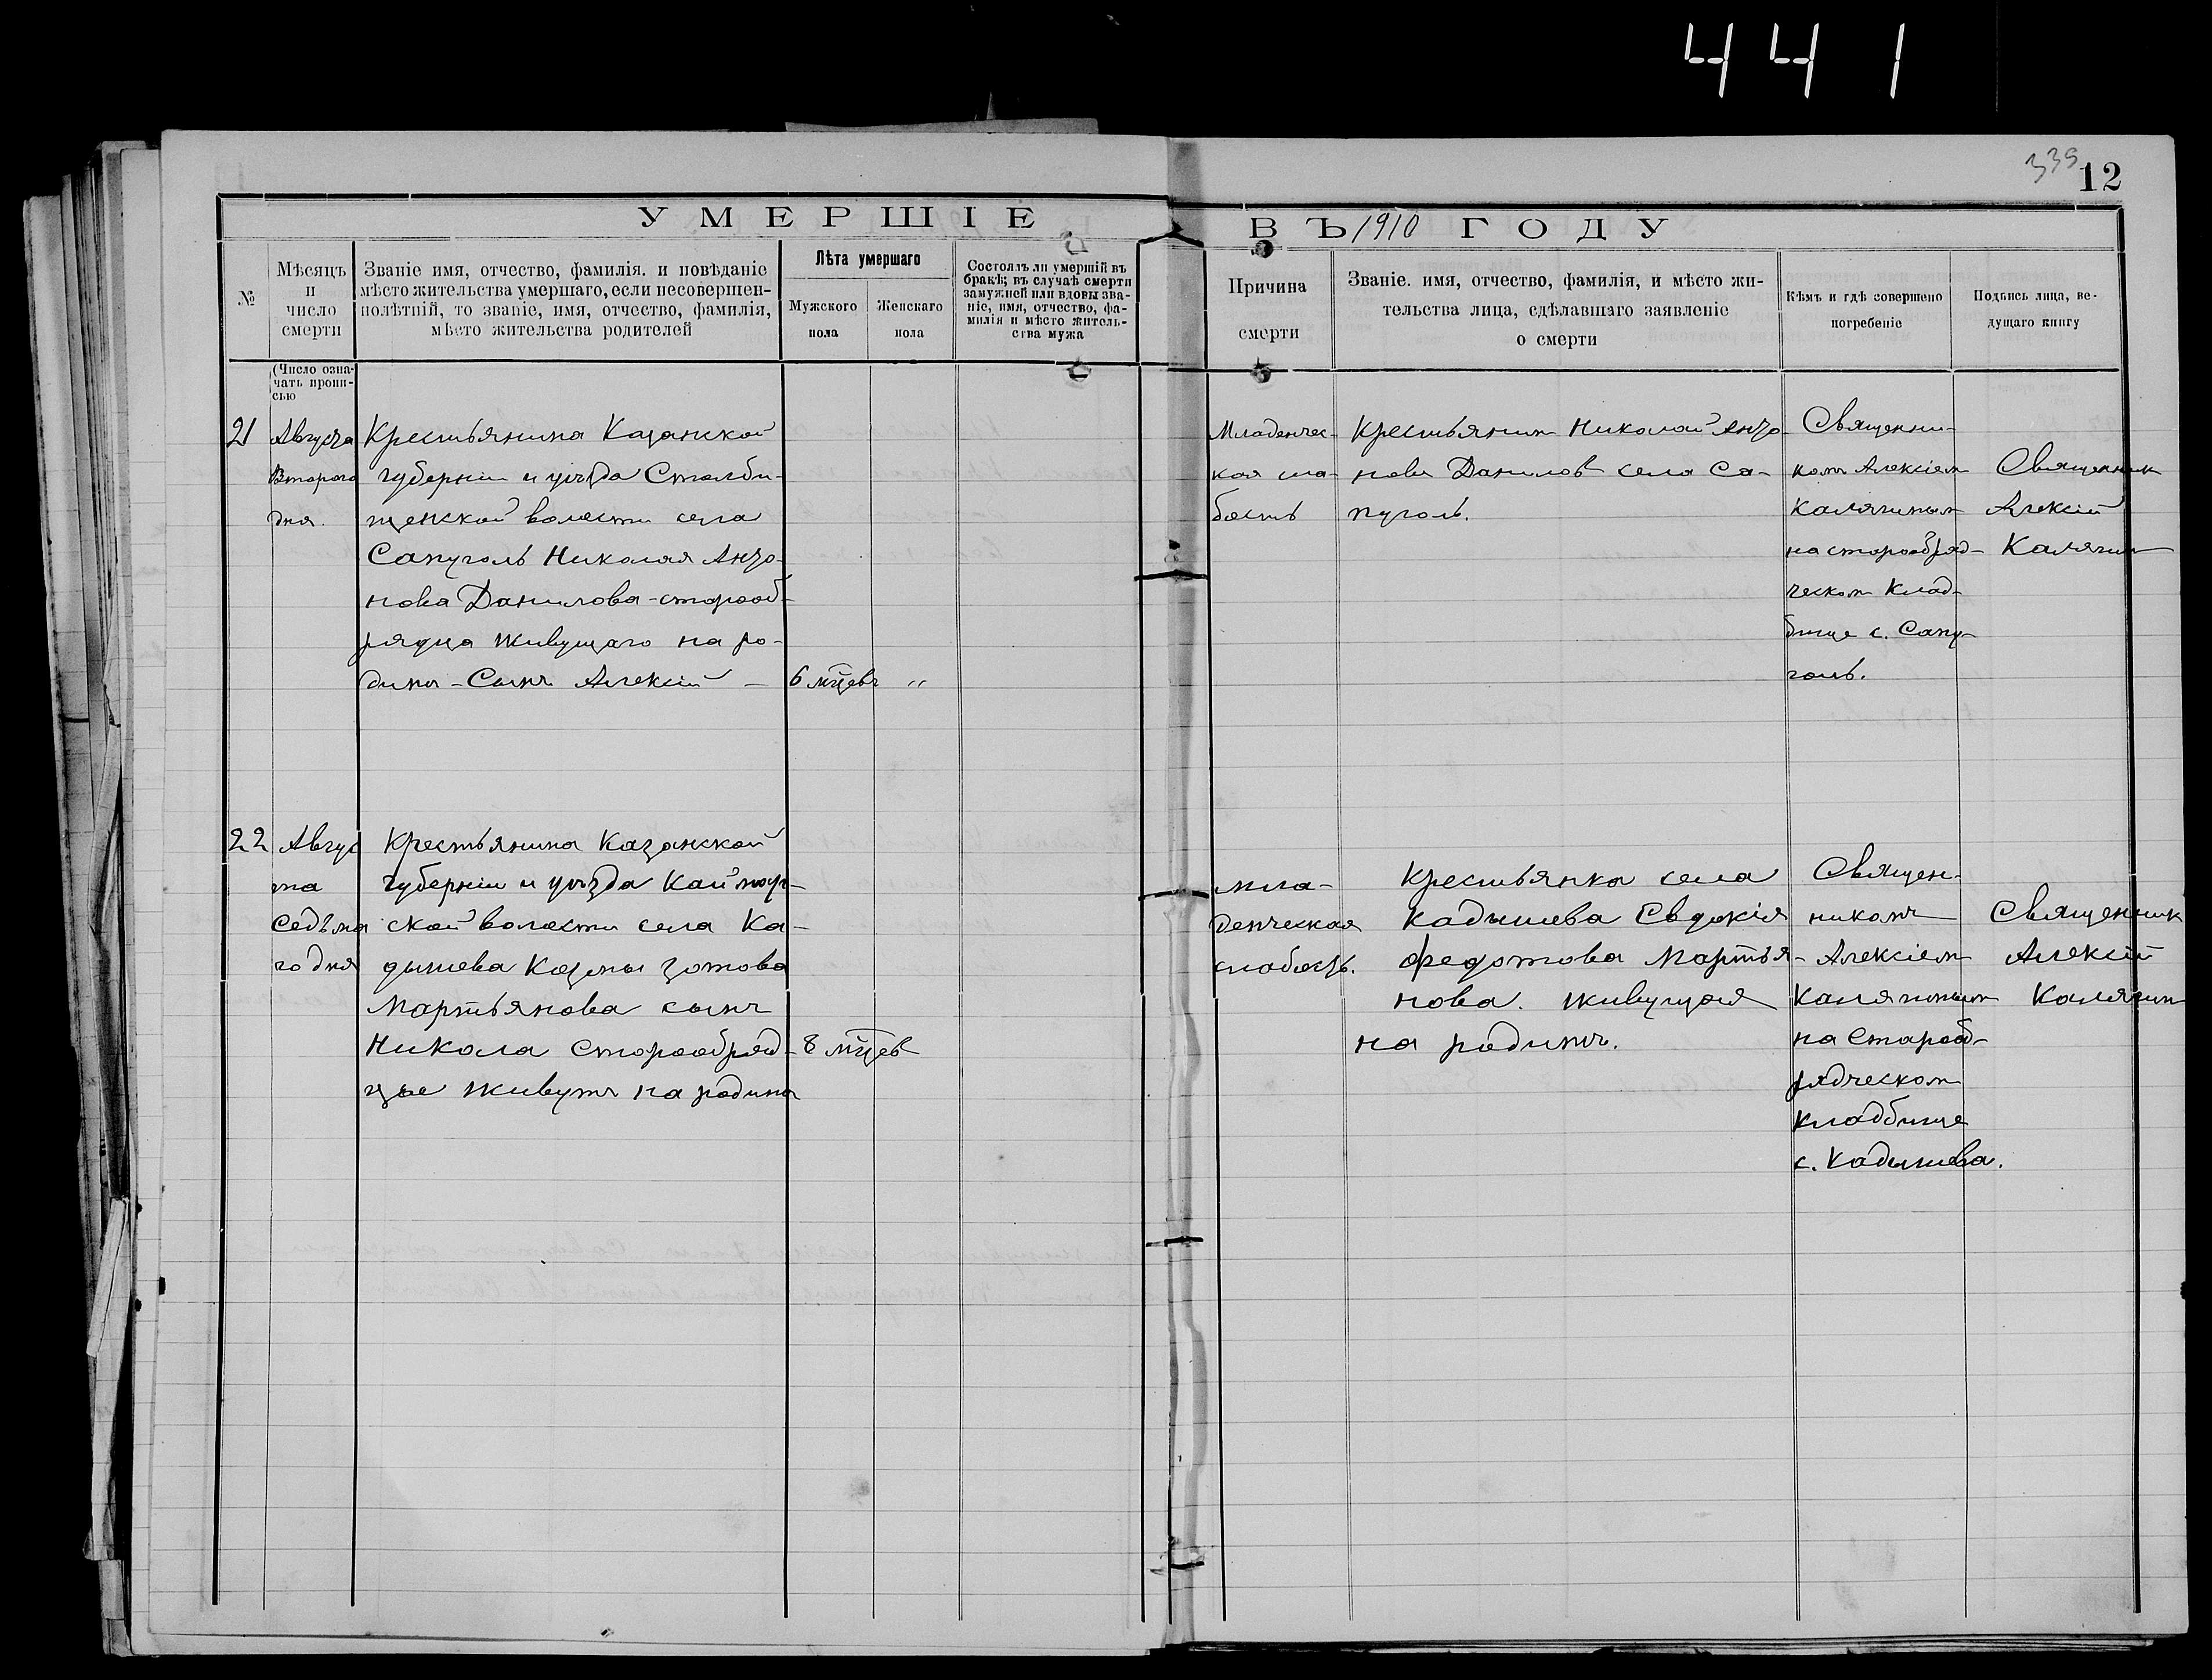 441
339
12
УМЕРШІЕ
ВЪ 1910 ГОДУ
№
Мѣсяцъ
и
число
смерти
Званіе имя, отчество, фамилія. и повѣданіе
мѣсто жительства умершаго, если несовершен-
нолѣтній, то званіе, имя, отчество, фамилія,
мѣсто жительства родителей
Лѣта умершаго
Мужского
пола
Женскаго
пола
Состоялъ ли умершій въ
бракѣ; въ случаѣ смерти
замужней или вдовы зва-
ніе, имя, отчество, фа-
милія и мѣсто житель-
ства мужа
Причина
смерти
Званіе. имя, отчество, фамилія, и мѣсто жи-
тельства лица, сдѣлавшаго заявленіе
о смерти
Кѣмъ и гдѣ совершено
погребеніе
Подпись лица, ве-
дущаго книгу
(Число озна-
чать пропи-
сью
21
Августа
Второго
дня.
Крестьянина Казанской
губерніи и уѣзда Столби-
щенской волости села
Сапуголь Николая Анто-
нова Данилова-старооб-
рядца живущаго на ро-
динѣ - Сынъ Алексій -
6 мцевъ
"
Младенчес-
кая сла-
бость
Крестьянин Николай Анто-
новъ Данилов села Са-
пуголь.
Священни-
комъ Алексіем
Калягиным
на старообряд-
ческом Клад-
бище с. Сапу-
голь.
Священник
Алексій
Калягин
22
Авгус
та
Седьма
го дня
Крестьянина Казанской
губерніи и уѣзда Каймар-
ской волости села Ка-
дышева Козмы Зотова
Мартьянова сынъ
Никола Старообряд-
цые живутъ на родинѣ
8 мцев
мла-
денческая
слабость.
Крестьянка села
Кадышева Евдокія
Федотова Мартья-
нова. живущая
на родинѣ.
Священ-
никомъ
Алексіем
Калягиным
на Старооб-
рядческом
кладбище
с. Кадышева.
Священник
Алексій
Калягин